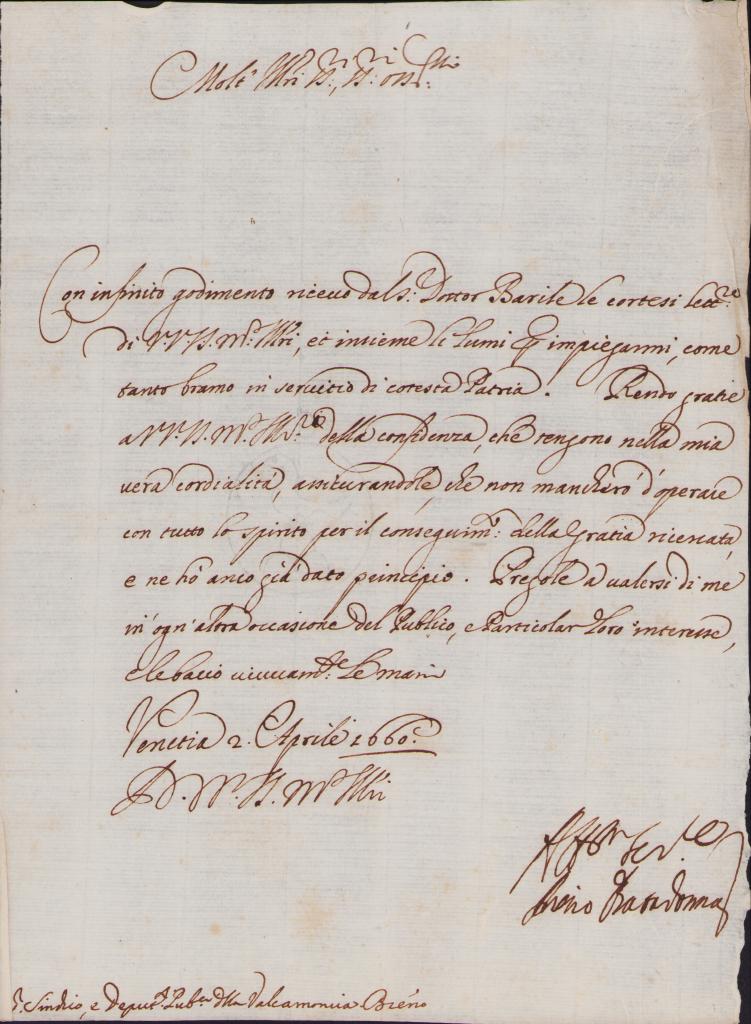 Molt' Ill.ri SS.ri, SS.ri oss.mi
Con infinito godimento ricevo dal S.r Dottor Barile le cortesi lett.re
di VV.SS. M.to Ill.ri, et insieme li lumi per impiegarmi, come
tanto bramo in servitio di cotesta Patria. Rendo gratie
a VV.SS. M.to Ill.ri della confidenza, che tengono nella mia
vera cordialità, assicurandole, che non mancherò d'operare
con tutto lo spirito per il conseguim.to della gratia ricercata,
e ne hò anco già dato principio. Pregole à valersi di me
in ogn'altra occasione del Publico, e Particolar loro interesse,
e le bacio vivvam.te le mani
Venetia 2. Aprile 1660.
D. VV.SS. M.to Ill.ri
Aff.mo Ser.e
S.i Sindico, e Deput.i Pub.ci della Valcamonica Breno